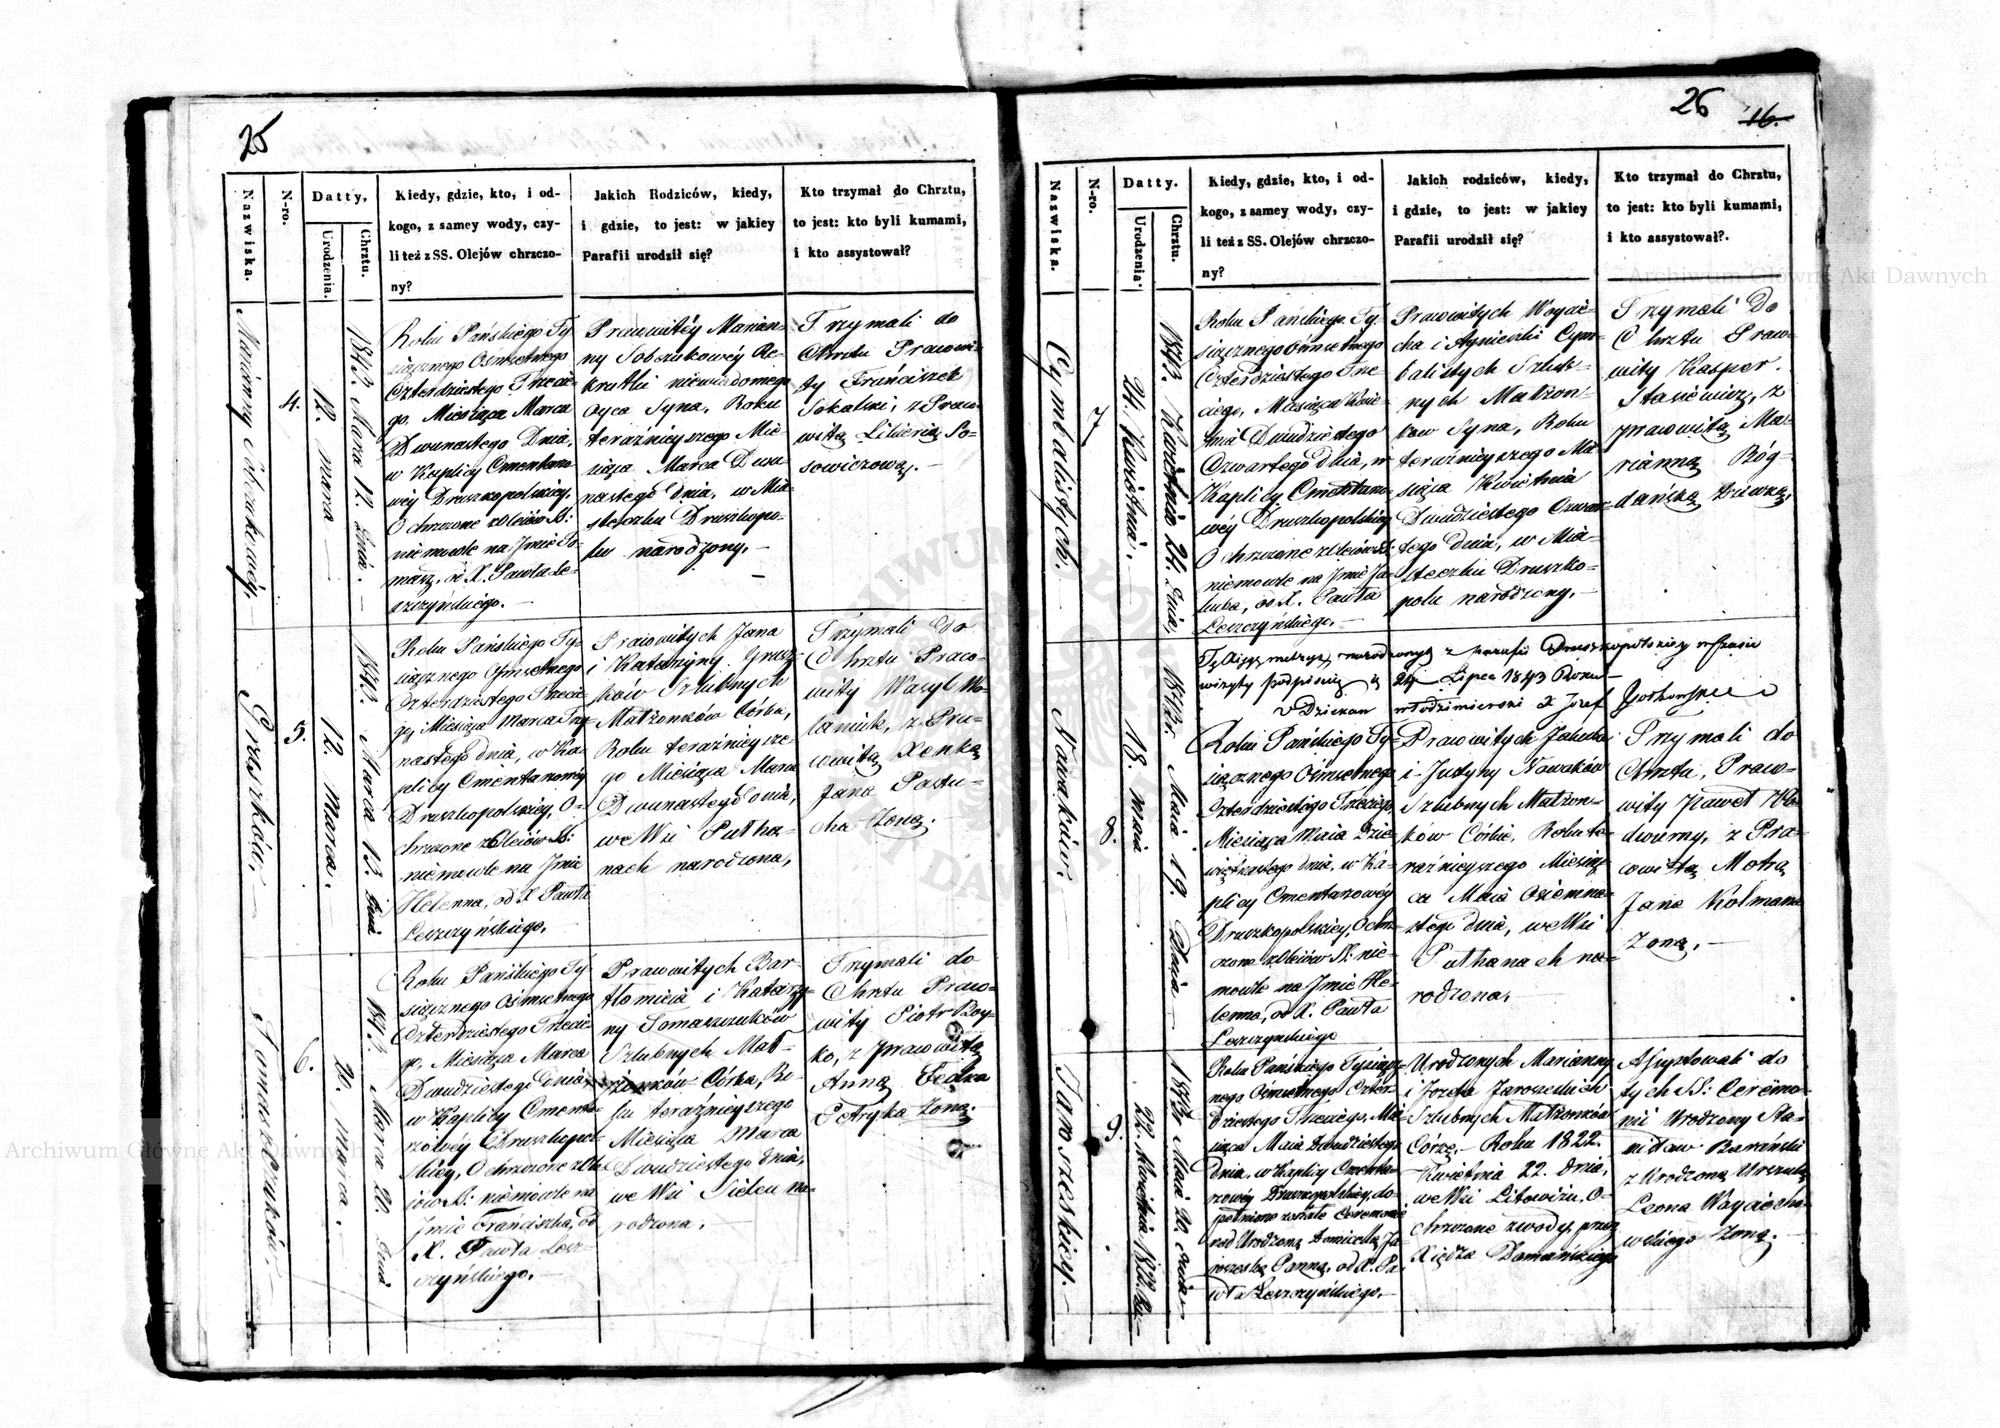 25
Nazwiska.
N-ro.
Datty,
Urodzenia.
Chrztu.
Kiedy, gdzie, kto, i od-
kogo, z samey wody, czy-
li też z SS. Olejów chrzczo-
ny?
Jakich Rodziców, kiedy,
i gdzie, to jest: w jakiey
Parafii urodził się?
Kto trzymał do Chrztu,
to jest: kto byli kumami,
i kto assystował?
Marianny Sobczukowéy.
4.
12. Marca
1843. Marca 12. Dnia.
Roku Pańskiego Ty-
siącznego Osmsetnego
Czterdziestego Trzecie-
go, Miesiąca Marca
Dwunastego Dnia,
w Kaplicy Cmentarzo-
wéy Druszkopolskiey,
Ochrzczone z Oleiów SS:
niemowle na Jmie To-
masz, od X. Pawła Le-
szczyńskiego.
Prawowitéy Marian-
ny Sobczukowéy Re-
krutki niewiadomego
Oyca Syna, Roku
teraźnieyszego Mie-
siąca Marca Dwu-
nastego Dnia, w Mia-
steczku Druszkopo-
lu narodzony.
Trzymali do
Chrztu Prawowi-
ty Franciszek
Sokalski, z Prawo-
witą Liberią So-
sowiczową.
Gruszków.
5.
12. Marca.
1843. Marca 13. Dnia
Roku Pańskiego Ty-
siącznego Osmsetnego
Czterdziestego Trzecie-
go, Miesiąca Marca Trzy-
nastego dnia, w Ka-
plicy Cmentarzowéy
Druszkopolskiey, O-
chrzczone z Oleiów SS:
niemowle na Jmie
Helenna, od X Pawła
Leszczyńskiego.
Prawowitych Jana
i Katarzyny Grusz-
ków Szlubnych
Małżonków Córka,
Roku teraźnieysze-
go Miesiąca Marca
Dwunastego Dnia,
we Wsi Putha-
nach narodzona,
Trzymali do
Chrztu Prawo-
wity Wasyl Wo-
łaniuk, z Pra-
wowitą Xenką
Jana Pastu-
cha Żoną.
Tomaszczuków.
6.
20. Marca.
1843. Marca 20. Dnia
Roku Pańskiego Ty-
siącznego Ośmsetnego
Czterdziestego Trzecie-
go, Miesiąca Marca
Dwudziestego Dnia
w Kaplicy Cmenta-
rzowéy Druszkopol-
skiey, Ochrzczone z Ole-
iów SS: niemowle na
Jmie Franciszka, od
X. Pawła Lesz-
czyńskiego.
Prawowitych Bar-
tłomieia i Katarzy-
ny Tomaszczuków
Szlubnych Mał-
żonków Córka, Ro-
ku teraźnieyszego
Miesiąca Marca
Dwudziestego Dnia,
we Wsi Sielcu na-
rodzona.
Trzymali do
Chrztu Prawo-
wity Piotr Boy-
ko, z Prawowitą
Anną Fedka
Petryka Żoną.
26
16.
Nazwiska.
N-ro.
Datty.
Urodzenia.
Chrztu.
Kiedy, gdzie, kto, i od-
kogo, z samey wody, czy-
li też z SS. Olejów chrzczo-
ny?
Jakich rodziców, kiedy,
i gdzie, to jest: w jakiey
Parafii urodził się?
Kto trzymał do Chrztu,
to jest: kto byli kumami,
i kto assystował?.
Cymbalistych.
7
24. Kwietnia.
1843. Kwietnia 24. Dnia,
Roku Pańskiego Ty-
siącznego Ośmsetnego
Czterdziestego Trze-
ciego, Miesiąca Kwie-
tnia Dwudziestego
Czwartego dnia, w
Kaplicy Cmentarzo-
wéy Druszkopolskiey
Ochrzczone z Oleiów SS:
niemowle na Jmie Ja-
kuba, od X. Pawła
Leszczyńskiego.
Prawowitych Woycie-
cha i Agnieszki Cym-
balistych Szlub-
nych Małżon-
ków Syna, Roku
teraźnieyszego Mie-
siąca Kwietnia
Dwudziestego Czwar-
tego Dnia, w Mia-
steczku Druszko-
polu narodzony.
Trzymali do
Chrztu Praw-
wity Kasper
Stasiewicz, z
prawowitą Ma-
rianną Bóg-
dańską Dziewką.
Tę Xięgę metryk narodzonych z parafii Druszkopolskiey w czasie
wizyty podpisuię 24 Lipca 1843 Roku
V Dziekan włodzimierski X Józef
Nowaków.
8.
18. Maia
1843. Maia 19. Dnia
Roku Pańskiego Ty-
siącznego Ośmsetnego
Czterdziestego Trzeciego,
Miesiąca Maia Dzie-
więtnastego dnia, w Ka-
plicy Cmentarzowéy
Druszkopolskiey, Ochrz-
czone z Oleiów SS: nie-
mowle na Jmie He-
lenna, od X. Pawła
Leszczyńskiego
Prawowitych Jakuba
i Justyny Nowaków
Szlubnych Małżon-
ków Córka, Roku te-
raźnieyszego Miesią-
ca Maia Osiemna-
stego dnia, we Wsi
Puthanach na-
rodzona.
Trzymali do
Chrztu, Praw-
wity Paweł
z Pra-
wowitą Motrą
Jana Kolmana
Żoną.
Jaroszeskiey.
9.
22. Kwietnia 1822. Ro-
1843 Maia 20. Dnia
Roku Pańskiego Tysiącz-
nego Ośmsetnego Czter-
dziestego Trzeciego, Mie-
siąca Maia Dwudziestego
Dnia, w Kaplicy Cmenta-
rzowéy Druszkopolskiey, do-
pełnione zostałe Ceremonie
nad Urodzoną Domicellą Ja-
roszeską Panną, od X. Pa-
wła Leszczyńskiego.
Urodzonych Marianny
i Józefa Jaroszeskich
Szlubnych Małżonków
Córzę, Roku 1822.
Kwietnia 22. Dnia,
we Wsi Litowiżu. O-
chrzczone z wody, przez
Xiędza Domańskiego
Assystowali do
tych SS: Ceremo-
nii Urodzony Sta-
nisław Barański
z Urodzoną Urszulą
Leona Woyciecho-
wskiego Żoną.
Archiwum Główne Akt Dawnych
Archiwum Główne Akt Dawnych